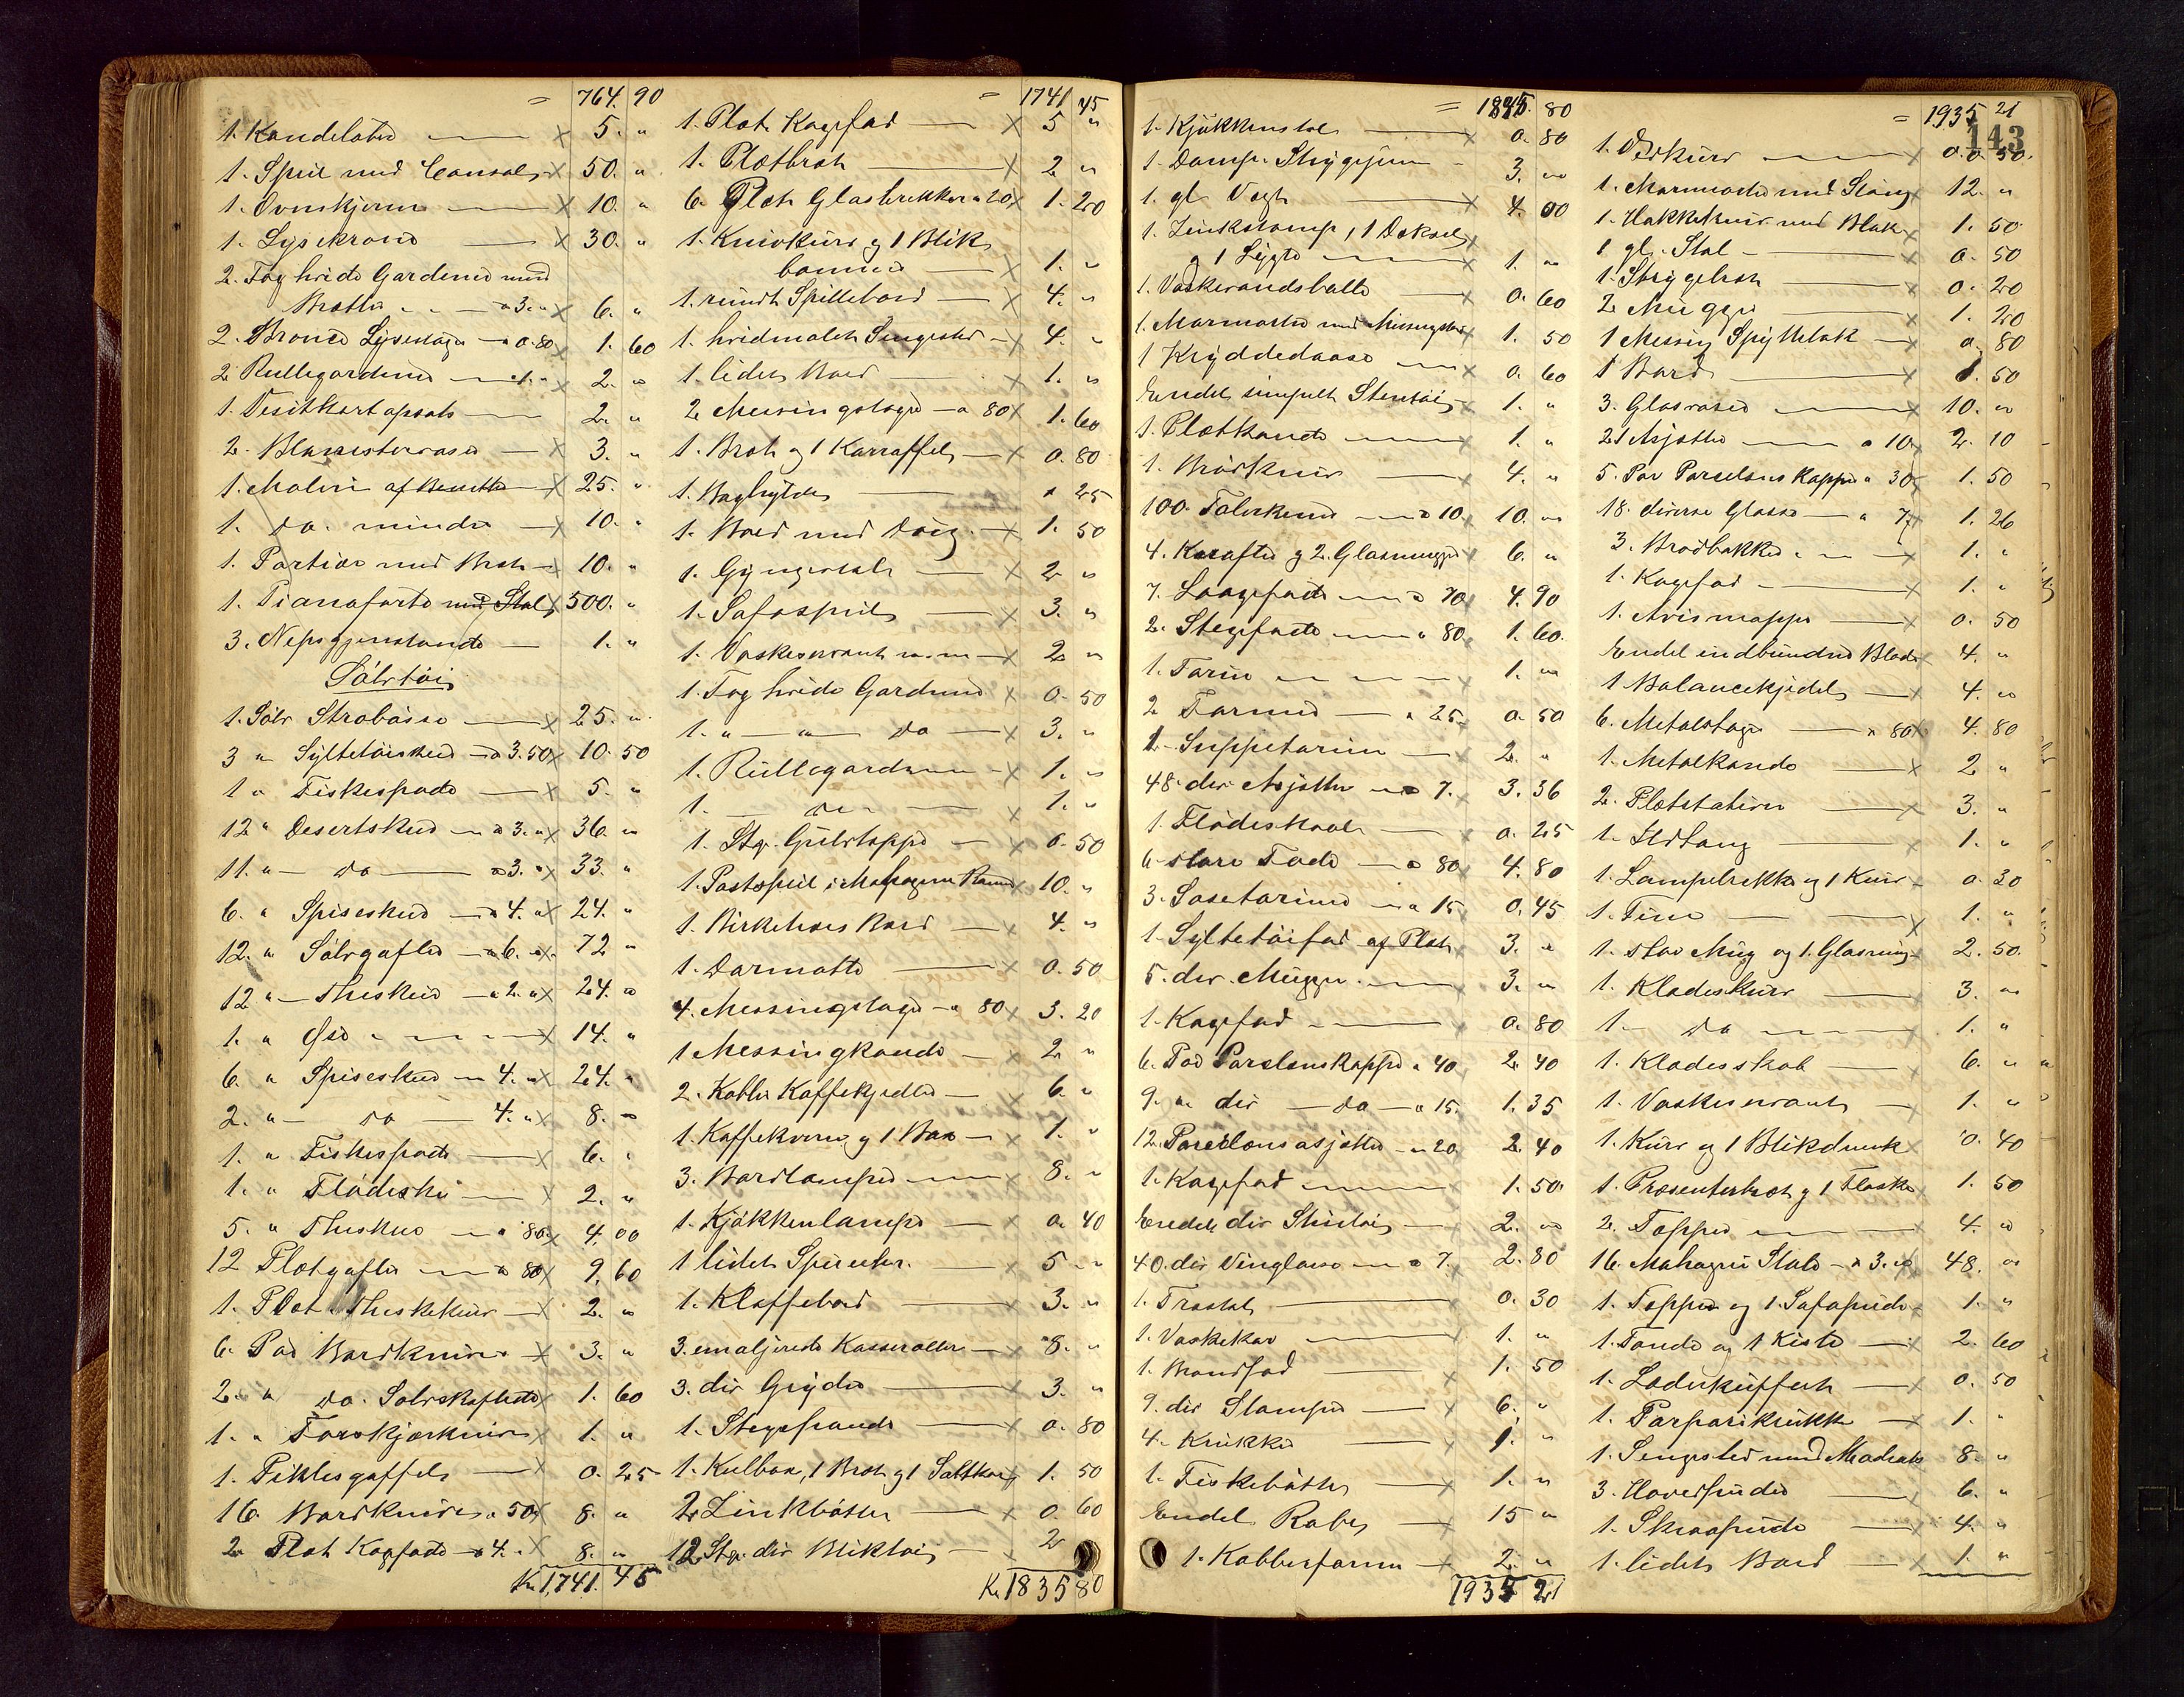 = 764. 90
1. Kandelaber — x 5. "
1. Speil med Consol x 50. "
1. Ovnskjerm — x 10. "
1. Lysekrone — x 30. "
2. Fag hvide Gardiner med
Bratter a 3. " x 6. "
2. Bronce Lysestager a 0.80 x 1. 60
2 Rullegardiner a 1. " x 2. "
1. Visitkartopsats — 2. "
2. Blomstervaser — x 3. "
1. Maleri af x 25. "
1. do. mindre — x 10. "
1. Portiere med x 10. "
1. Pianoforte med Stol x 500. "
3. Nipsgjenstande — 1. "
Sölvtöi
1. Sölv Ströbösse — x 25. "
3 " Syltetöiskeer a 3.50 x 10. 50
1 " Fiskespade — x 5. "
12 " Desertskeer a 3. " x 36. "
11. " — do — a 3. " x 33. "
6. " Spiseskeer a 4. " x 24. "
12. " Sölvgafler — a 6. " x 72 "
12 " — Theskeer — a 2. " x 24. "
1. " Øse x 14. "
6. " Spiseskeer 4. " x 24. "
2. " — do — 4. " x 8. "
1. " Fiskespade — x 6. "
1. " Flödeske — x 2. "
5. " Theskeer — a 80 x 4. 00
12 Pletgafler a 80 x 9. 60
1. Plet Theskekurv — x 2. "
6. Par Bordkniver x 3. "
2. " do. Sölvskaftede x 1. 60
1. " Forskjærkniv x 1. "
1. Piklesgaffel — x 0. 25
16. Bordkniver a 50 x 8. "
2 Plet Kagfade a 4. " x 8. "
Kr 1,741. 45
= 1741 45
1. Plet Kagefad — x 5 "
1. Pletbret — x 2 "
6. Plet Glasbrikker a 20 x 1. 20
1. Knivkurv og 1 Blik
bomme — x 1. "
1. rundt Spillebord — x 4. "
1. hvidmalet Sengested — x 4. "
1. lidet Bord — x 1. "
2 Messingstager — a 80 x 1. 60
1. Bret og 1 Karaffel — x 0. 80
1. Boghylde — " 25
1. Bord med Dug. — x 1. 50
1. Gyngestol — x 2 "
1. Sofaspeil — x 3. "
1. Vaskeservant m.m — x 2 "
1. Fag hvide Gardiner x 0. 50
1. " — " — do — x 3. "
1. Rullegardiner — x 1. "
1. — do — x 1. "
1. Stk. Gulvteppe — x 0. 50
1. Postspeil i Mahogni Ramme x 10. "
1. Birketræs Bord — x 4. "
1. Dørmatte — x 0. 50
4. Messingstager — a 80 x 3. 20
1 Messingkande — x 2. "
2. Kobber Kaffekjedler — x 6. "
1. Kaffekvern og 1 Box — x 1. "
3. Bordlamper — 8. "
1. Kjøkkenlampe — x 0. 40
1 lidet Speil — 5 "
1. Klaffebord — x 3. "
3. emaljerede Kasseroller — x 8. "
3. div Gryder — x 3. "
1. Stegepande — x 0. 80
1. Kulbox, 1 Bret og 1 Saltkar x 1. 50
2 Zinkbötter — x 0. 60
12 Stk. div Bliktöi — x 2
Kr 1835 80
= 1835. 80
1. Kjøkkenstol — x 0. 80
1. Damp Strygejern — 3. "
1. gl Vægt — x 4. 00
1. Zinkstamp, 1 Dørslag
og 1 Lygte — x 1. "
1. Vaskevandsballe — x 0. 60
1. Marmorter med Messingstøder 1. 50
1 Krydderdaase — x 0. 60
Endel simpelt Stentöi x 1. "
1. Pletkande — x 1. "
1. Brödkurv — x 4. "
100. Talerkener a 10 x 10. "
4. Karafler og 2. Glasmugger x 6. "
7. Laagefade a 70 x 4. 90
2. Stegefade a 80 1. 60.
1. Terin x 1. "
2 Formed — a 25. 0. 50
1. Suppeterin — 2. "
48. div Asjetter a 7. x 3. 36
1. Flödeskaal — x 0. 25
6 store Fade a 80 x 4. 80
3. Soseteriner a 15 x 0. 45
1. Syltetöifad af Plet x 3. "
5. div. Mugger. x 3. "
1. Kagefad — x 0. 80
6. Par Porselenskopper a 40 2. 40
9. " div — do — a 15. 1. 35
12. Porcelænsasjetter — a 20. 2. 40
1. Kagefad 1. 50
Endel div Stentöi — x 2. "
40. div Vinglasse a 7. 2. 80
1. Træstol — 0. 30
1. Vaskekar — x 1. "
1. Brandfad — x 1. 50
9. div Stamper — x 6. "
4. Krukker — x 1. "
1. Fiskebötte — x 1. "
Endel Rabes — x 15 "
1. Kobberform — x 2. "
1935 21
= 1935 21
143
1. Vedkurv — x 0. 50.
1. Marmorter med Stöder x 12. "
1. Hakkekniv med Blok x 1. 50
1 gl. Stol — x 0. 50
1. Strygebret — x 0. 20
2 Mugger — x 1. 20
1 Messing Spyttebak — x 0. 80
1 Bord — x 1. 50
3. Glasvaser — x 10. "
21 Asjetter a 10 x 2. 10
5. Par Porselens Kopper a 30 x 1. 50
18. diverse Glasse — a 7 x 1. 26
3. Brödbakker x 1. "
1. Kagefad — x 1. "
1. Avismappe — x 0. 50
Endel indbundne Blade x 4. "
1 Balancekjedel — x 4. "
6. Metalstager — a 80 x 4. 80
1. Metalkande — x 2 "
2. Pletstativer — x 3. "
1. Ildtang — x 1. "
1. Lampebrikke og 1 Kurv — 0. 30
1. Tine — x 1. "
1. stor Mug og 1. Glasmug — 2. 50.
1. Klædeskurv — x 3. "
1. do — x 1. "
1. Klædesskab — x 6. "
1. Vaskeservant — x 1. "
1. Kurv og 1 Blikdunk x 0. 40
1. Presenterbret og 1 Flaske x 1. 50
2. Tepper — x 4. "
16. Mahogni Stole — a 3. " x 48. "
1. Teppe og 1. Sofapude x 1. "
1. Tønde og 1 Kiste — x 2. 60
1. Læderkuffert — x 0. 50
1. Parparikrukke — x 1. "
1. Sengested med Madrats 8. "
3. Hovedpuder — x 6. "
1. Skraapude — x 4. "
1. lidet Bord — x 1. "